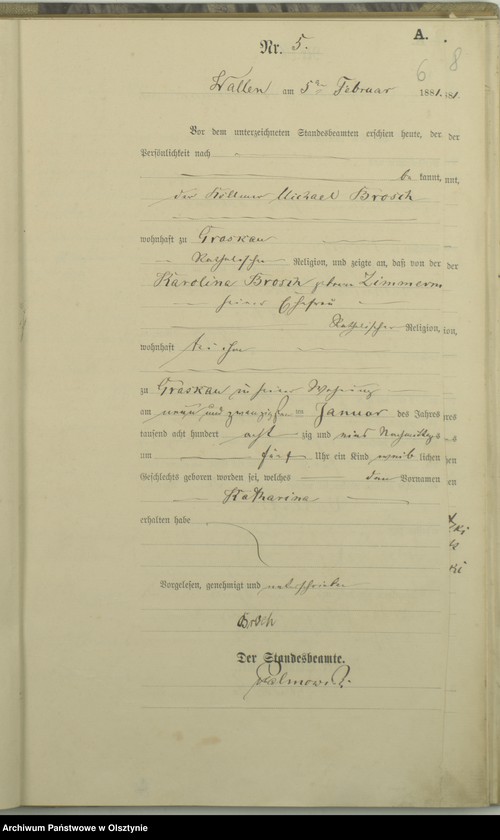 A.
Nr. 5.
6 8
Wallen am 5ten Februar 1881.
Vor dem unterzeichneten Standesbeamten erschien heute, der
Persönlichkeit nach
be kannt,
der Köllmer Michael Brosch
wohnhaft zu Groskau
Katholischer Religion, und zeigte an, daß von der
Karolina Brosch geborene Zimmerm
seiner Ehefrau
Katholischer Religion,
wohnhaft bei ihm
zu Groskau in seiner Wohnung
am neun und zwanzigsten Januar des Jahres
tausend acht hundert acht zig und eins Nachmittags
um fünf Uhr ein Kind weib lichen
Geschlechts geboren worden sei, welches den Vornamen
Katharina
erhalten habe
Vorgelesen, genehmigt und unterschrieben
Brosch
Der Standesbeamte.
Archiwum Państwowe w Olsztynie